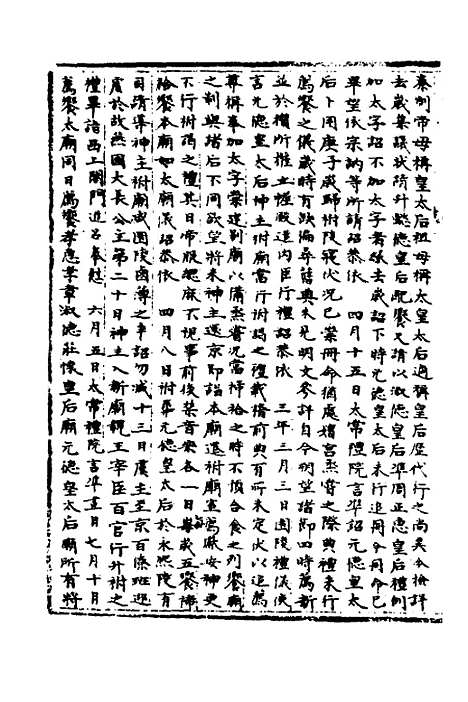 秦例帝母稱皇太后祖母稱太皇太后通稱皇后歷代行之尚矣今檢詳
去歲集議狀請升懿德皇后配饗又請以淑德皇后準周正惠皇后禮例
加太字詔不加太字者緣去歲詔下時元德皇太后未行追冊今冊命已
畢望依宗訥等所請詔恭依 四月十五日太常禮院言準詔元德皇太
后卜用庚子歲歸祔陵寢伏況已崇冊命猶處權宮烝嘗之際典禮未行
薦饗之儀歲時有缺徧尋舊典未見明文參詳自今朔望諸節四時薦新
並於攢所推立幄殿遣內臣行禮詔恭依 三年三月三日園陵禮儀使
言元德皇太后神主祔廟當行祔謁之禮載稽前典有所未定伏以追薦
尊稱奉加太字崇建別廟以備烝嘗況當禘祫之時不預合食之列饗廟
之制與諸后不同欲望將來神主還京即詣本廟遷祔廟室薦獻安神更
不行祔謁之禮其日帝服袍靴不視事前後禁音樂各一日每歲五饗禘
祫饗本廟如太廟儀詔恭依 四月八日祔葬元德皇太后於永熙陵有
司請導神主祔廟咸園陵鹵簿之半詔勿減十三日虞主至京百僚班迎
虞於故燕國大長公主第二十日神主入新廟親王宰臣百官行升祔之
禮畢詣西上閤門進名奉慰 六月五日太常禮院言準畫日七月十日
薦饗太廟同日薦饗孝惠孝章淑德莊懷皇后廟元德皇太后廟所有將